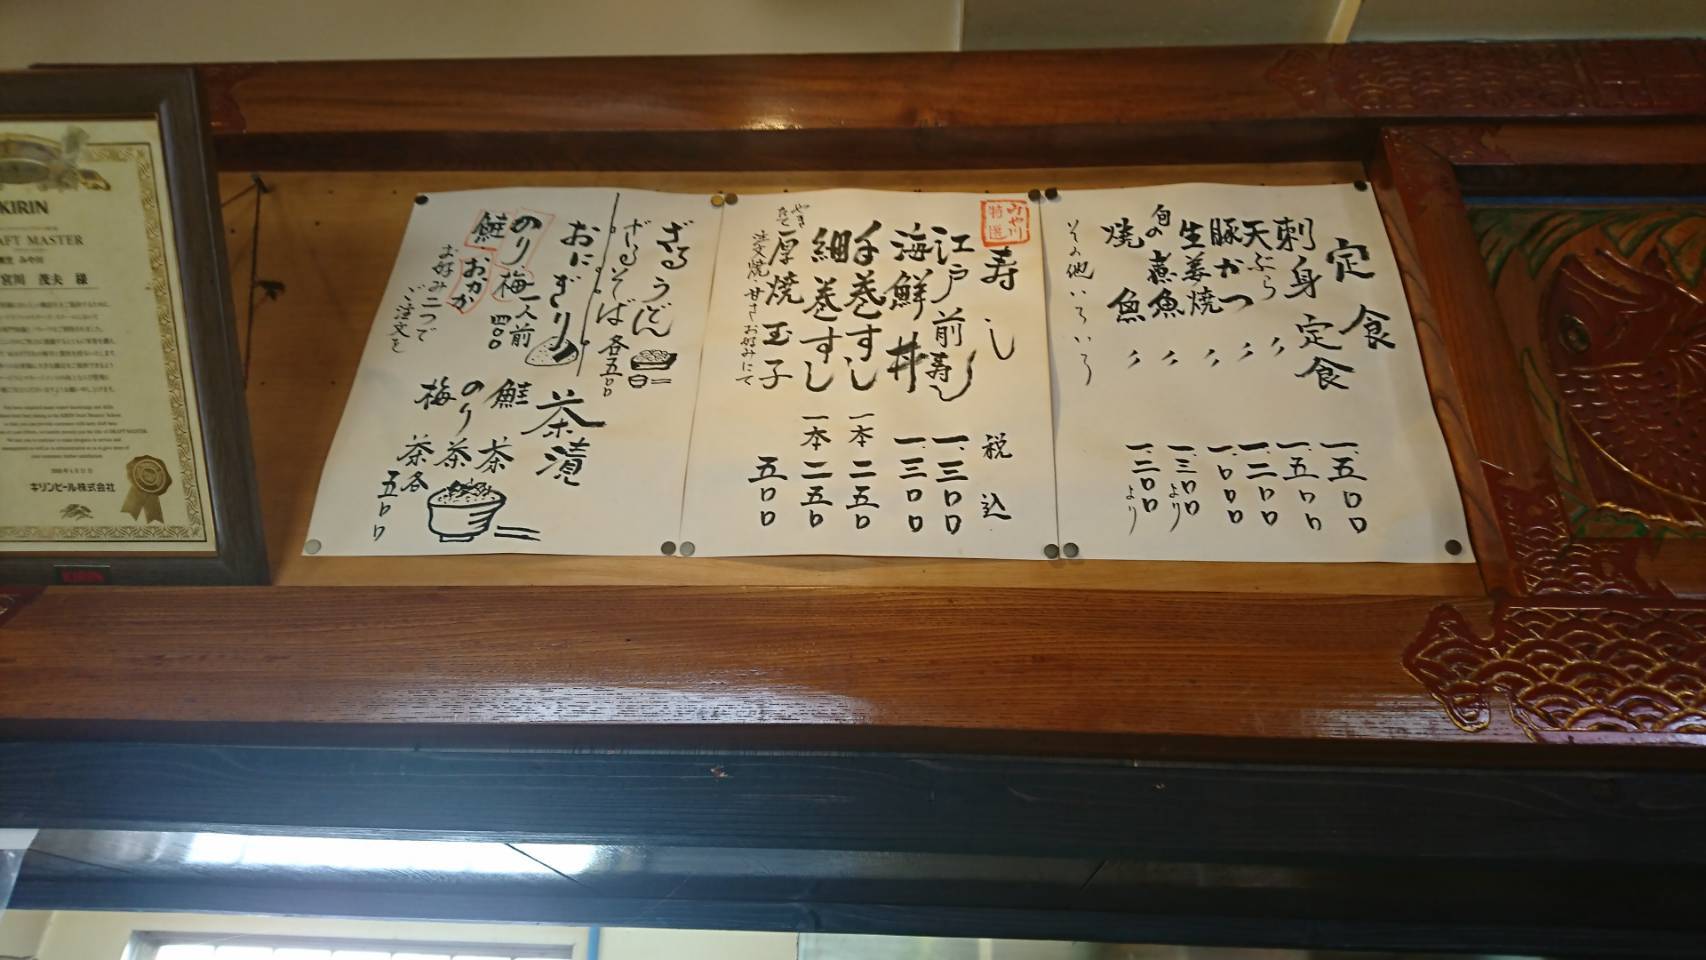 定食
刺身定食 一、五〇〇
天ぷら 〃 一、五〇〇
豚かつ 〃 一、二〇〇
生姜焼 〃 一、〇〇〇
旬の煮魚 〃 一、三〇〇より
焼魚 一、二〇〇より
その他いろいろ
みや川
特選
寿し 税込
江戸前寿し 一、三〇〇
海鮮丼 一、三〇〇
手巻すし 一本 二五〇
細巻すし 一本 二五〇
やきたて
厚焼玉子 五〇〇
注文焼 甘さお好みにて
ざるうどん
ざるそば 各五〇〇
おにぎり
のり 梅 一人前 四〇〇
鮭 おかか
お好み二つで
ご注文を
茶漬
鮭茶
のり茶
梅茶 各五〇〇
KIRIN
DRAFT MASTER
宮川 茂夫 様
キリンビール株式会社
KIRIN